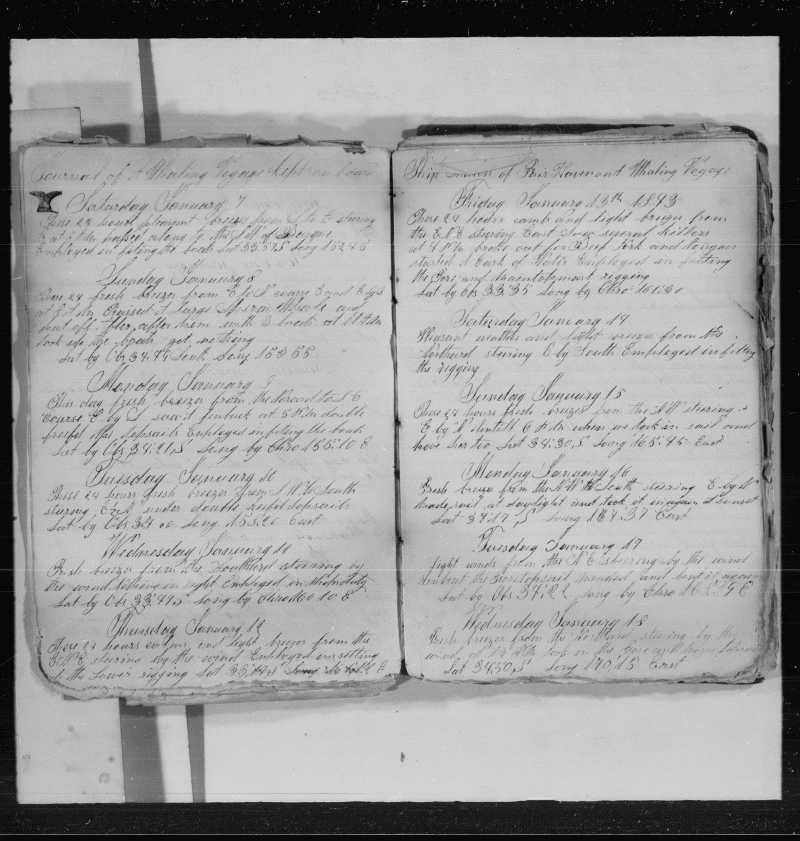 Journal of A Whaling Voyage kept on board
Saturday January 7
These 24 hours pleasant breezes from S to E steering
E at passed along to the SW of
Employed in fixing the boats Lat 33.57 S Long 152.45
Sunday January 8
These 24 fresh breezes from E to N course E and E by S
at 8 A M raised a large Sperm Whale and
put off after them with 3 boats at 11 A M
took up the boats got nothing
Lat by Obs 34.47 South Long 153 55
Monday January 9
This day fresh breezes from the Norard to S E
Course E by S saw a finback at 5 P M double
reefed the topsails Employed in fixing the boats
Lat by Obs 34.21 S Long by Chro 155.10 E
Tuesday January 10
These 24 hours fresh breezes from S W to South
steering E by N under double reefed topsails
Lat by Obs 34 00 Long 158.20 East
Wednesday January 11
Fresh breezes from the Southard steering by
the wind nothing in sight Employed on
Lat by Obs 33.47 S Long by Chro 160 10 E
Thursday January 12
These 24 hours calm and light breezes from the
E N E steering by the wind Employed in setting
up the Lower rigging Lat 33. S Long E
Ship of New Haven on A Whaling Voyage
Friday January 13th 1843
These 24 hours calm and light breezes from
the E N E steering East saw several killers
at 4 P M broke out for Beef Pork and
started A Cask of Water Employed in fitting
the Fore and Maintopmast rigging
Lat by Obs 33.35 Long by Chro 161.30
Saturday January 14
Pleasant weather and light breezes from the
Northard steering E by South Employed in fitting
the rigging
Sunday January 15
These 24 hours fresh breezes from the N W steering
E by N untill 6 P M when we took in sail and
hove her too Lat 34.30 S Long 165.45 East
Monday January 16
Fresh breezes from the N W to South steering E by N
made sail at daylight and took it in again at sunset
Lat 34.17 S Long 167.37 East
Tuesday January 17
light winds from the N E steering by the wind
unbent the Foretopsail mended and bent it again
Lat by Obs 34.22 Long by Chro E
Wednesday January 18
Fresh breezes from the Northard steering by the
wind at P M took in the Fore and mizen topsail
Lat 34.50 S Long 170.15 East